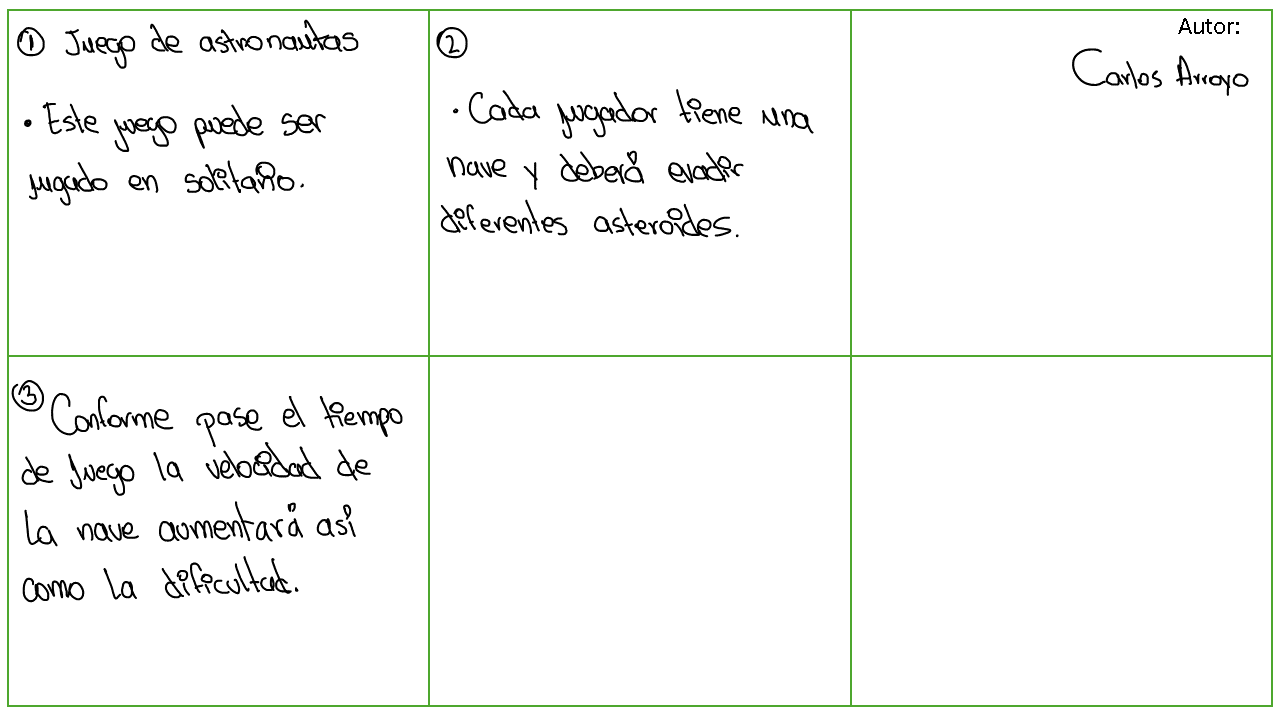 ① Juego de astronautas
• Este juego puede ser
jugado en solitario.
②
• Cada jugador tiene una
nave y deberá evadir
diferentes asteroides.
Autor:
Carlos Arroyo
③ Conforme pase el tiempo
de juego la velocidad de
la nave aumentará así
como la dificultad.